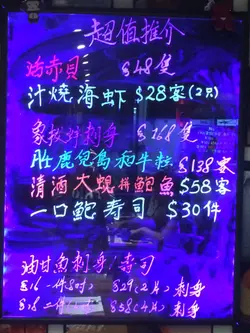 超值推介
海赤貝 $48隻
汁燒海虾 $28客(2只)
象拔蚌刺身 $168隻
肚鹿兒島和牛粒 $138客
清酒大蜆拼鮑魚 $58客
一口鮑寿司 $30件
油甘魚刺身/寿司
$16一件 $29(2片)刺身
$18二件 $58(4片)刺身